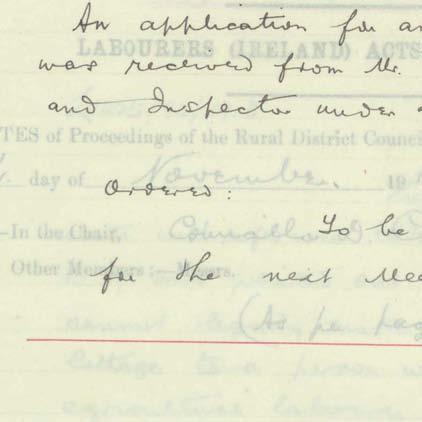 An application for an
LABOURERS (IRELAND) ACTS
was received from Mr.
and Inspector under
TES of Proceedings of the Rural District Counci
day of November. 19
Ordered:
-In the Chair, Councillor
To be
Other Members:—Messrs.
for the next Mee
(As per pag
cottage to a person